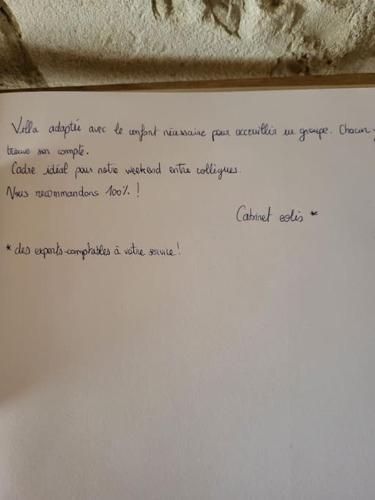 Villa adaptée avec le confort nécessaire pour acceuillir un groupe. Chacun y
trouve son compte.
Cadre idéal pour notre weekend entre collègues.
Nous recommandons 100% !
Cabinet eolis *
* des experts-comptables à votre service !